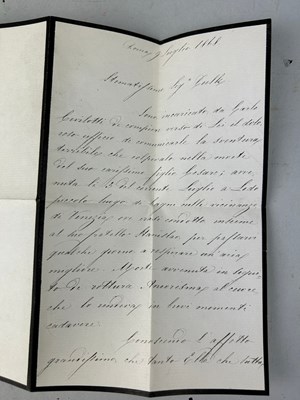 9 Luglio 1868
Stimatissimo Sig.r
Sono incaricato da Carlo
di compiere verso di Lei il dolo
roso ufficio di comunicarle la sventura
terribile che colpivalo nella morte
del suo carissimo figlio Cesare; avve
nuta li 2 del corrente Luglio a
piccolo luogo di bagni nelle vicinanze
di ove erasi condotto insieme
al suo fratello per passarvi
qualche giorno a respirare un'aria
migliore. Morte avvenuta in segui
to di rottura al cuore
che lo in brevi momenti
cadavere.
Conoscendo l'affetto
grandissimo, che tanto Ella che tutta